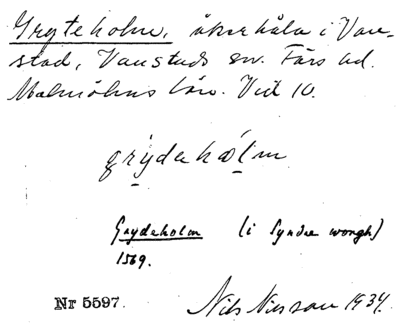 Gryteholm, åkerhåla i Van-
stad, Vanstads sn. Färs hd.
Malmöhus län. Vid 10.
grydehålm
Grydeholm (i Syndre wongh)
1569.
Nr 5597. Nils Nilsson 1934.